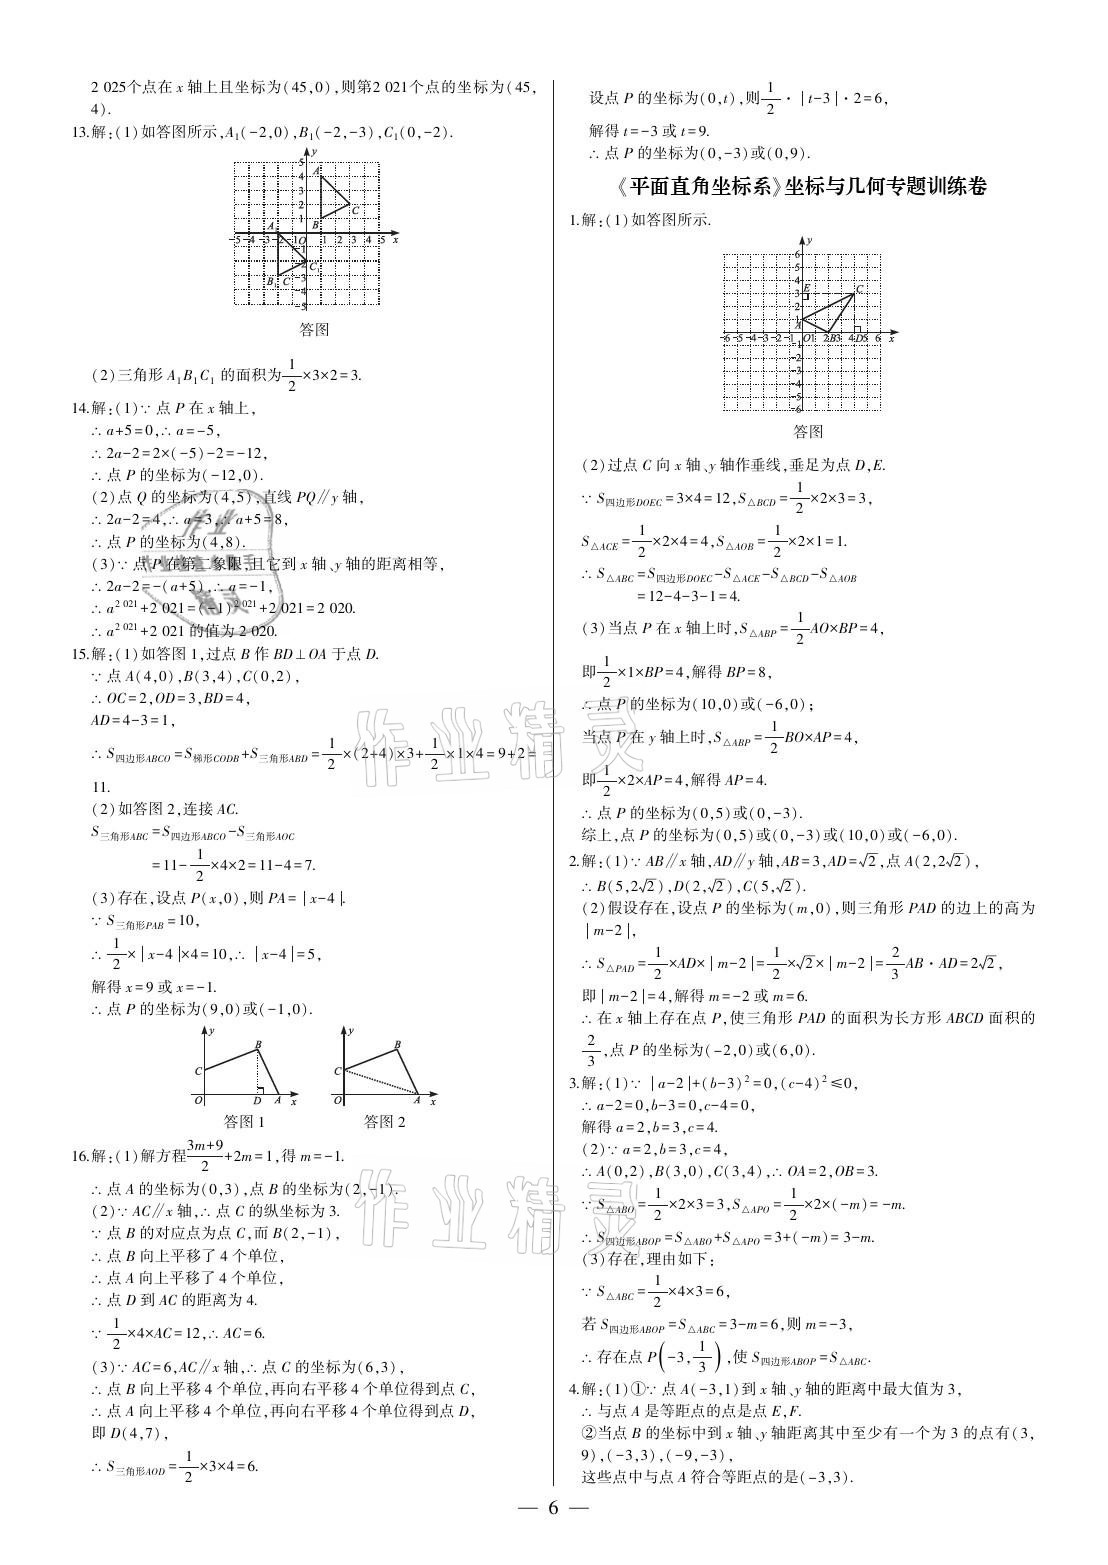 2 025个点在 x 轴上且坐标为(45,0),则第2 021个点的坐标为(45,
4).
13.解:(1)如答图所示,A₁(-2,0),B₁(-2,-3),C₁(0,-2).
答图
(2)三角形 A₁B₁C₁ 的面积为1/2×3×2=3.
14.解:(1)∵ 点 P 在 x 轴上,
∴ a+5=0,∴ a=-5,
∴ 2a-2=2×(-5)-2=-12,
∴ 点 P 的坐标为(-12,0).
(2)点 Q 的坐标为(4,5),直线 PQ∥y 轴,
∴ 2a-2=4,∴ a=3,∴ a+5=8,
∴ 点 P 的坐标为(4,8).
(3)∵ 点 P 在第二象限,且它到 x 轴、y 轴的距离相等,
∴ 2a-2=-(a+5),∴ a=-1,
∴ a^2 021+2 021=(-1)^2 021+2 021=2 020.
∴ a^2 021+2 021 的值为 2 020.
15.解:(1)如答图 1,过点 B 作 BD⊥OA 于点 D.
∵ 点 A(4,0),B(3,4),C(0,2),
∴ OC=2,OD=3,BD=4,
AD=4-3=1,
∴ S四边形ABCO=S梯形CODB+S三角形ABD=1/2×(2+4)×3+1/2×1×4=9+2=
11.
(2)如答图 2,连接 AC.
S三角形ABC=S四边形ABCO-S三角形AOC
=11-1/2×4×2=11-4=7.
(3)存在,设点 P(x,0),则 PA=|x-4|.
∵ S三角形PAB=10,
∴ 1/2×|x-4|×4=10,∴ |x-4|=5,
解得 x=9 或 x=-1.
∴ 点 P 的坐标为(9,0)或(-1,0).
答图 1 答图 2
16.解:(1)解方程(3m+9)/2+2m=1,得 m=-1.
∴ 点 A 的坐标为(0,3),点 B 的坐标为(2,-1).
(2)∵ AC∥x 轴,∴ 点 C 的纵坐标为 3.
∵ 点 B 的对应点为点 C,而 B(2,-1),
∴ 点 B 向上平移了 4 个单位,
∴ 点 A 向上平移了 4 个单位,
∴ 点 D 到 AC 的距离为 4.
∵ 1/2×4×AC=12,∴ AC=6.
(3)∵ AC=6,AC∥x 轴,∴ 点 C 的坐标为(6,3),
∴ 点 B 向上平移 4 个单位,再向右平移 4 个单位得到点 C,
∴ 点 A 向上平移 4 个单位,再向右平移 4 个单位得到点 D,
即 D(4,7),
∴ S三角形AOD=1/2×3×4=6.
设点 P 的坐标为(0,t),则1/2·|t-3|·2=6,
解得 t=-3 或 t=9.
∴ 点 P 的坐标为(0,-3)或(0,9).
《平面直角坐标系》坐标与几何专题训练卷
1.解:(1)如答图所示.
答图
(2)过点 C 向 x 轴、y 轴作垂线,垂足为点 D,E.
∵ S四边形DOEC=3×4=12,S△BCD=1/2×2×3=3,
S△ACE=1/2×2×4=4,S△AOB=1/2×2×1=1.
∴ S△ABC=S四边形DOEC-S△ACE-S△BCD-S△AOB
=12-4-3-1=4.
(3)当点 P 在 x 轴上时,S△ABP=1/2AO×BP=4,
即1/2×1×BP=4,解得 BP=8,
∴ 点 P 的坐标为(10,0)或(-6,0);
当点 P 在 y 轴上时,S△ABP=1/2BO×AP=4,
即1/2×2×AP=4,解得 AP=4.
∴ 点 P 的坐标为(0,5)或(0,-3).
综上,点 P 的坐标为(0,5)或(0,-3)或(10,0)或(-6,0).
2.解:(1)∵ AB∥x 轴,AD∥y 轴,AB=3,AD=√2,点 A(2,2√2),
∴ B(5,2√2),D(2,√2),C(5,√2).
(2)假设存在,设点 P 的坐标为(m,0),则三角形 PAD 的边上的高为
|m-2|,
∴ S△PAD=1/2×AD×|m-2|=1/2×√2×|m-2|=2/3AB·AD=2√2,
即|m-2|=4,解得 m=-2 或 m=6.
∴ 在 x 轴上存在点 P,使三角形 PAD 的面积为长方形 ABCD 面积的
2/3,点 P 的坐标为(-2,0)或(6,0).
3.解:(1)∵ |a-2|+(b-3)²=0,(c-4)²≤0,
∴ a-2=0,b-3=0,c-4=0,
解得 a=2,b=3,c=4.
(2)∵ a=2,b=3,c=4,
∴ A(0,2),B(3,0),C(3,4),∴ OA=2,OB=3.
∵ S△ABO=1/2×2×3=3,S△APO=1/2×2×(-m)=-m.
∴ S四边形ABOP=S△ABO+S△APO=3+(-m)=3-m.
(3)存在,理由如下:
∵ S△ABC=1/2×4×3=6,
若 S四边形ABOP=S△ABC=3-m=6,则 m=-3,
∴ 存在点 P(-3,1/3),使 S四边形ABOP=S△ABC.
4.解:(1)①∵ 点 A(-3,1)到 x 轴、y 轴的距离中最大值为 3,
∴ 与点 A 是等距点的点是点 E,F.
②当点 B 的坐标中到 x 轴、y 轴距离其中至少有一个为 3 的点有(3,
9),(-3,3),(-9,-3),
这些点中与点 A 符合等距点的是(-3,3).
— 6 —
作业精灵
作业精灵